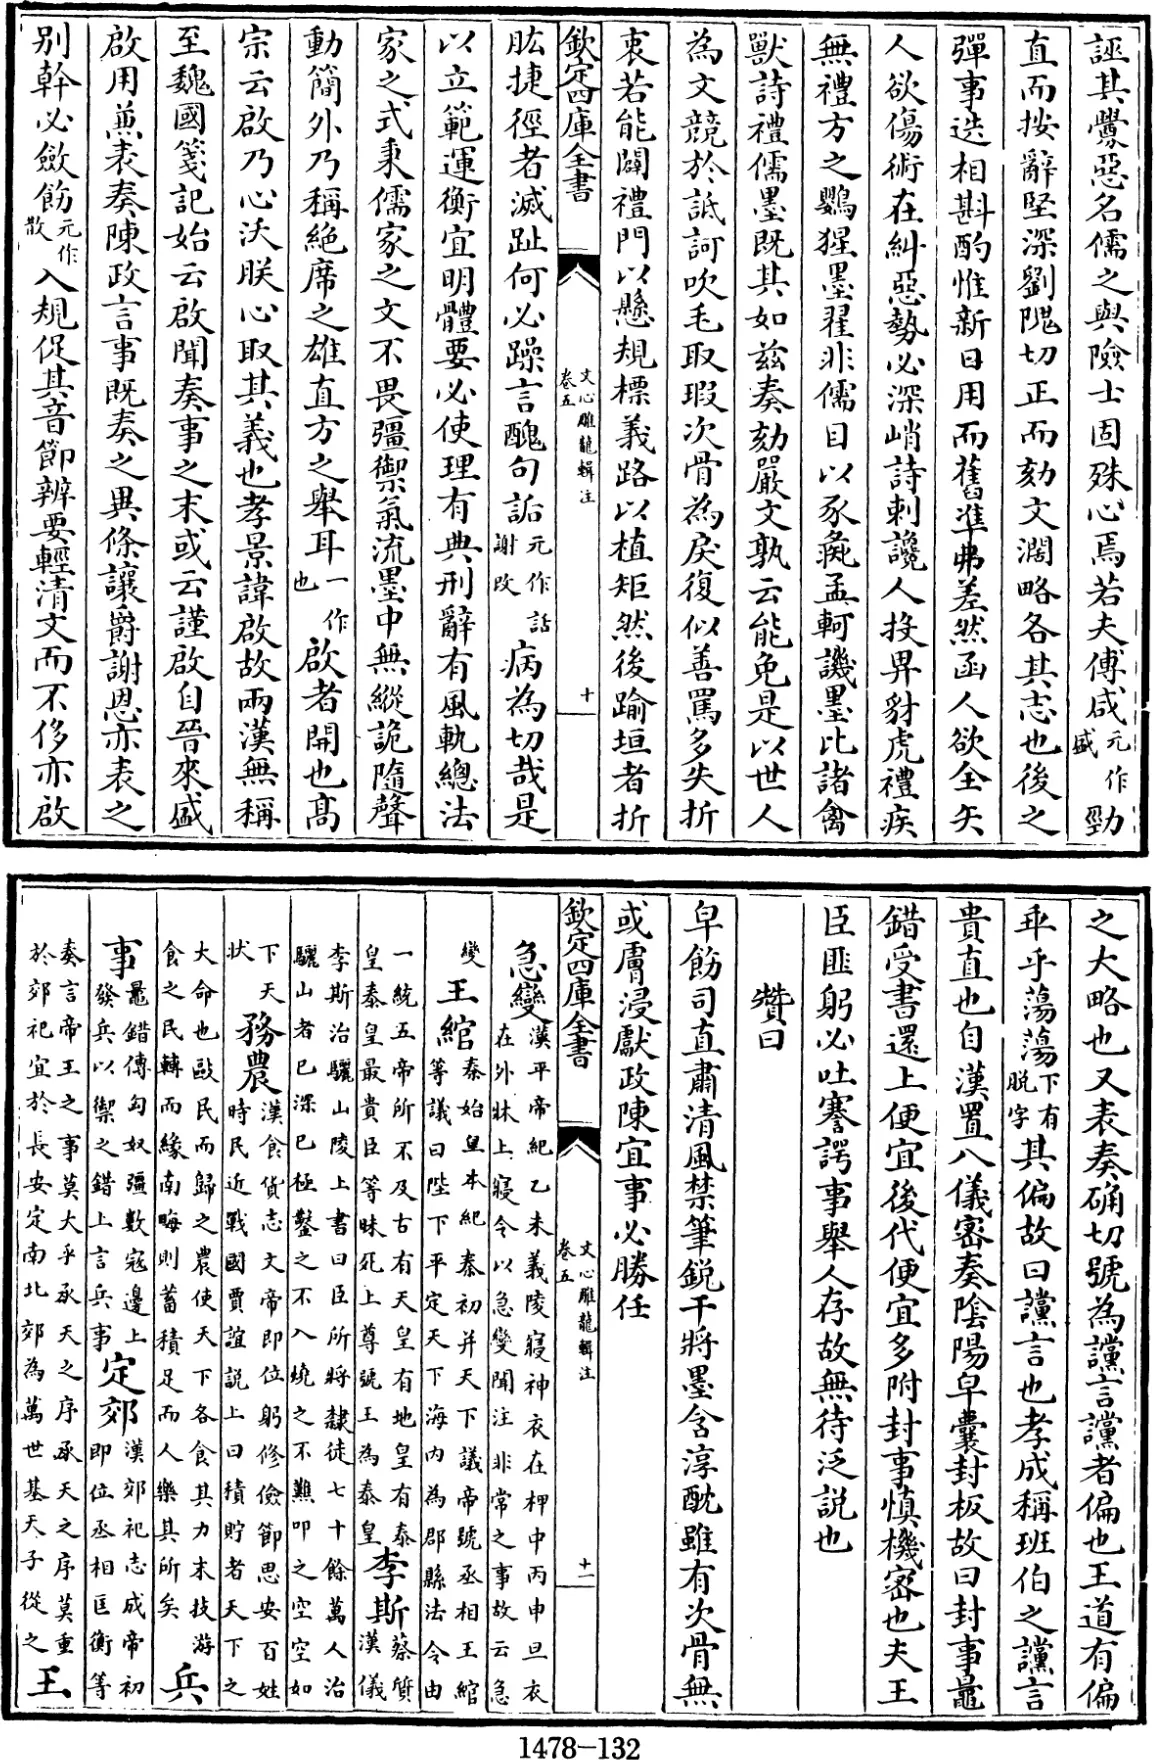 誣其釁惡名儒之與險士固殊心焉若夫傅咸元作盛勁
直而按辭堅深劉隗切正而劾文濶略各其志也後之
彈事迭相斟酌惟新日用而舊準弗差然函人欲全矢
人欲傷術在糾惡勢必深峭詩刺讒人投畀豺虎禮疾
無禮方之鸚猩墨翟非儒目以豕彘孟軻譏墨比諸禽
獸詩禮儒墨既其如兹奏劾嚴文孰云能免是以世人
為文競於詆訶吹毛取瑕次骨為戾復似善罵多失折
衷若能闢禮門以懸規標義路以植矩然後踰垣者折
欽定四庫全書 文心雕龍輯注 卷五 十
肱捷徑者滅趾何必躁言醜句詬元作話謝改病為切哉是
以立範運衡宜明體要必使理有典刑辭有風軌總法
家之式秉儒家之文不畏彊禦氣流墨中無縱詭隨聲
動簡外乃稱絶席之雄直方之舉耳一作也啟者開也髙
宗云啟乃心沃朕心取其義也孝景諱啟故兩漢無稱
至魏國箋記始云啟聞奏事之末或云謹啟自晉來盛
啟用兼表奏陳政言事既奏之異條讓爵謝恩亦表之
别幹必斂飭元作散入規促其音節辨要輕清文而不侈亦啟
之大略也又表奏确切號為讜言讜者偏也王道有偏
乖乎蕩蕩下有脱字其偏故曰讜言也孝成稱班伯之讜言
貴直也自漢置八儀密奏陰陽皁囊封板故曰封事鼂
錯受書還上便宜後代便宜多附封事慎機密也夫王
臣匪躬必吐謇諤事舉人存故無待泛説也
贊曰
皁飭司直肅清風禁筆鋭干將墨含淳酖雖有次骨無
或膚浸獻政陳宜事必勝任
欽定四庫全書 文心雕龍輯注 卷五 十一
急變漢平帝紀乙未義陵寢神衣在柙中丙申旦衣在外牀上寢令以急變聞注非常之事故云急
變王綰秦始皇本紀秦初并天下議帝號丞相王綰等議曰陛下平定天下海内為郡縣法令由
一統五帝所不及古有天皇有地皇有泰皇泰皇最貴臣等昧死上尊號王為泰皇李斯蔡質漢儀
李斯治驪山陵上書曰臣所將隸徒七十餘萬人治驪山者已深已極鑿之不入燒之不爇叩之空空如
下天狀務農漢食貨志文帝即位躬修儉節思安百姓時民近戰國賈誼説上曰積貯者天下之
大命也敺民而歸之農使天下各食其力末技游食之民轉而緣南畮則蓄積足而人樂其所矣兵
事鼂錯傳匈奴彊數寇邊上發兵以禦之錯上言兵事定郊漢郊祀志成帝初即位丞相匡衡等
奏言帝王之事莫大乎承天之序承天之序莫重於郊祀宜於長安定南北郊為萬世基天子從之王
1478—132